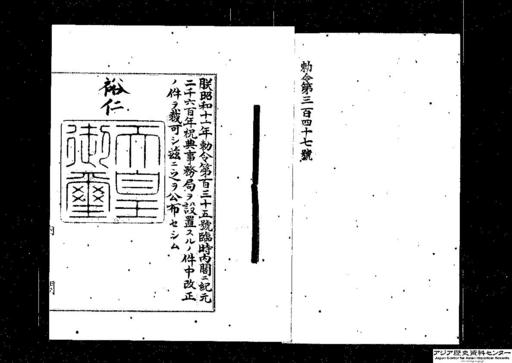 勅令第三百四十七號
朕昭和十一年勅令第百三十五號臨時内閣ニ紀元
二千六百年祝典事務局ヲ設置スルノ件中改正
ノ件ヲ裁可シ茲ニ之ヲ公布セシム
裕仁
天皇御璽
内閣
アジア歴史資料センター
Japan Center for Asian Historical Records